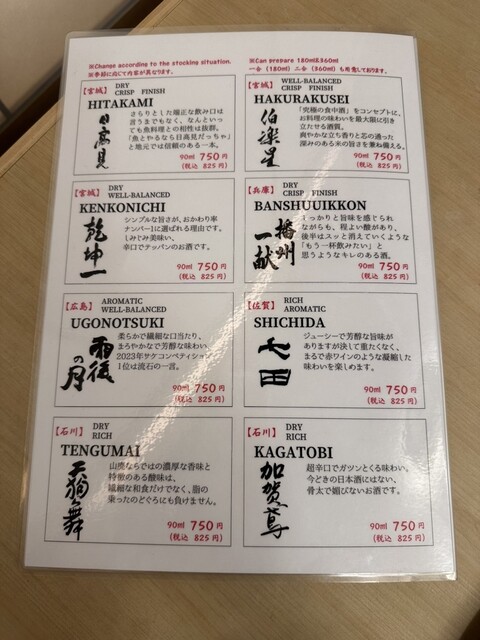 ※Change according to the stocking situation.
※季節に応じて内容が異なります。
※Can prepare 180ml&360ml
一合(180ml)二合(360ml)も用意しております。
【宮城】 DRY
CRISP FINISH
HITAKAMI
日高見
さらりとした端正な飲み口は
言うまでもなく、なんといっ
ても魚料理との相性は抜群。
「魚とやるなら日高見だっちゃ」
と地元では信頼のある一本。
90ml 750円
(税込 825円)
【宮城】 WELL-BALANCED
CRISP FINISH
HAKURAKUSEI
伯楽星
「究極の食中酒」をコンセプトに、
お料理の味わいを最大限に引き
立たせる酒質。
爽やかな立ち香りと芯の通った
深みのある米の旨さを兼ね備える。
90ml 750円
(税込 825円)
【宮城】 DRY
WELL-BALANCED
KENKONICHI
乾坤一
シンプルな旨さが、おかわり率
ナンバー1に選ばれる理由です。
しみじみ美味い、
辛口でテッパンのお酒です。
90ml 750円
(税込 825円)
【兵庫】 DRY
CRISP FINISH
BANSHUUIKKON
播州
一献
しっかりと旨味を感じられ
ながらも、程よい酸があり、
後半はスッと消えていくような
「もう一杯飲みたい」と
思うようなキレのある酒。
90ml 750円
(税込 825円)
【広島】 AROMATIC
WELL-BALANCED
UGONOTSUKI
雨後の月
柔らかで繊細な口当たり、
まろやかなで芳醇な味わい
2023年サケコンペティション
1位は流石の一言。
90ml 750円
(税込 825円)
【佐賀】 RICH
AROMATIC
SHICHIDA
七田
ジューシーで芳醇な旨味が
ありますが決して重たくなく、
まるで赤ワインのような凝縮した
味わいを楽しめます。
90ml 750円
(税込 825円)
【石川】 DRY
RICH
TENGUMAI
天狗舞
山廃ならではの濃厚な香味と
特徴のある酸味は、
繊細な和食だけでなく、脂の
乗ったのどぐろにも負けません。
90ml 750円
(税込 825円)
【石川】 DRY
RICH
KAGATOBI
加賀鳶
超辛口でガツンとくる味わい。
今どきの日本酒にはない、
骨太で媚びないお酒です。
90ml 750円
(税込 825円)